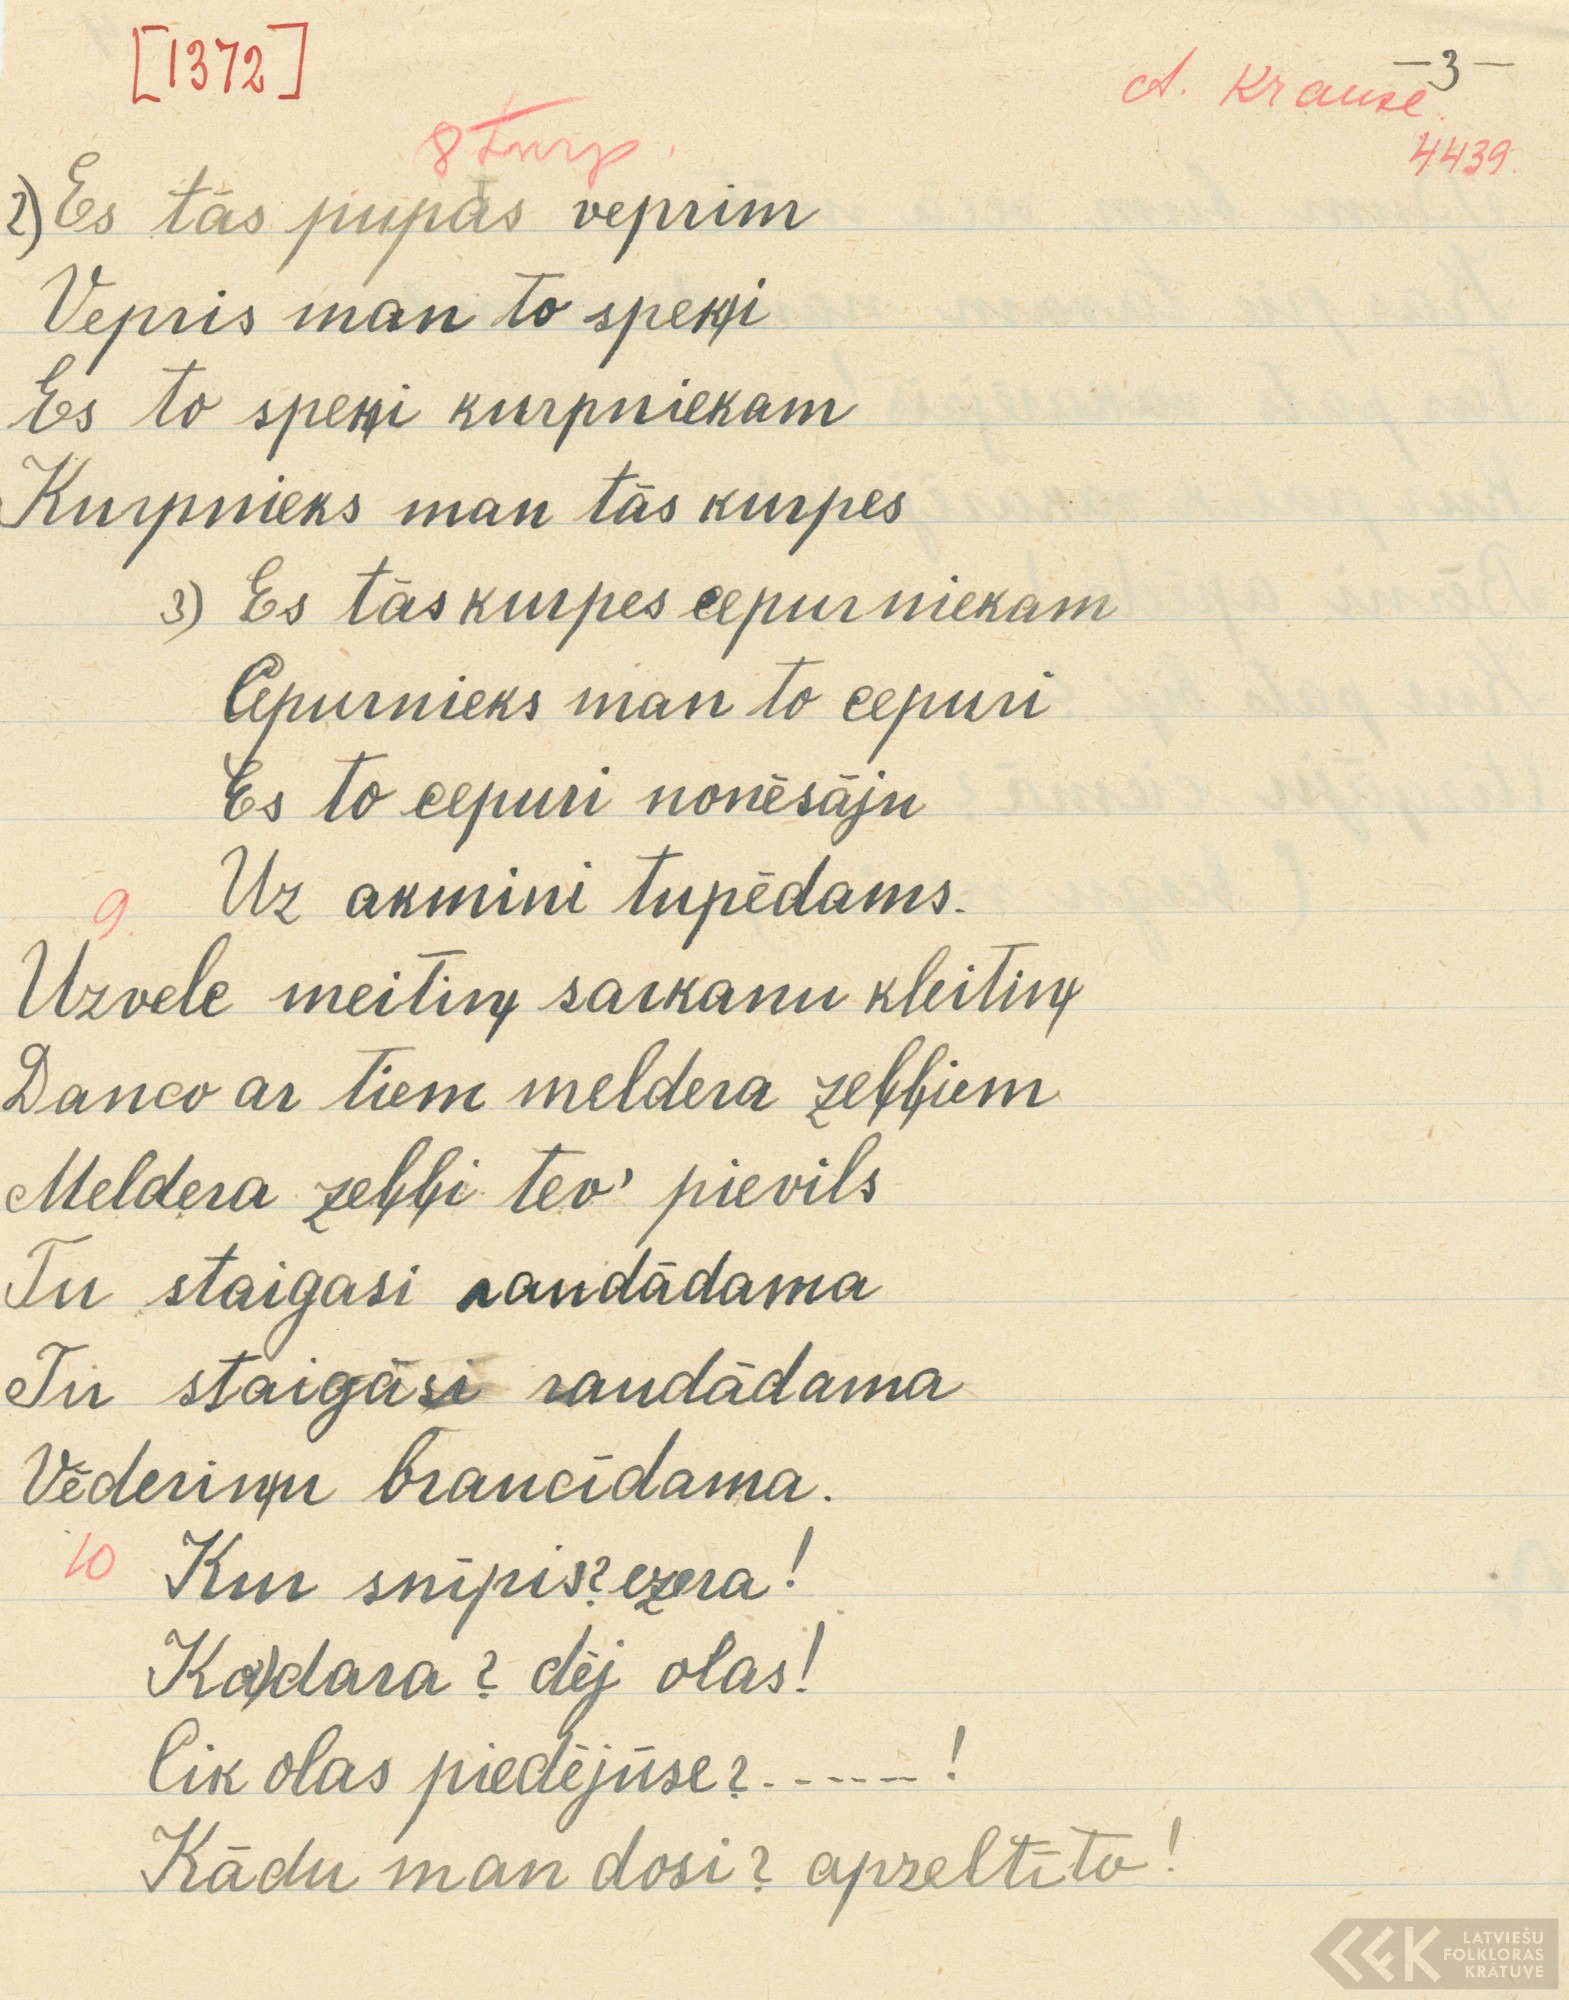 [1372]
-3-
A. Krause.
4439.
8 turp.
2) Es tās pupas veprim
Vepris man to speķi
Es to speķi kurpniekam
Kurpnieks man tās kurpes
3) Es tās kurpes cepurniekam
Cepurnieks man to cepuri
Es to cepuri nonēsāju
Uz akmini tupēdams.
9.
Uzvele meitiņ sarkanu kleitiņ
Danco ar tiem meldera zeļļiem
Meldera zeļļi tev' pievils
Tu staigasi raudādama
Tu staigāsi raudādama
Vēderiņu braucīdama.
10 Kur snīpis? ezera!
Ko dara? dēj olas!
Cik olas piedējūse? . - - - - - !
Kādu man dosi? apzeltīto!
LATVIEŠU
FOLKLORAS
KRĀTUVE